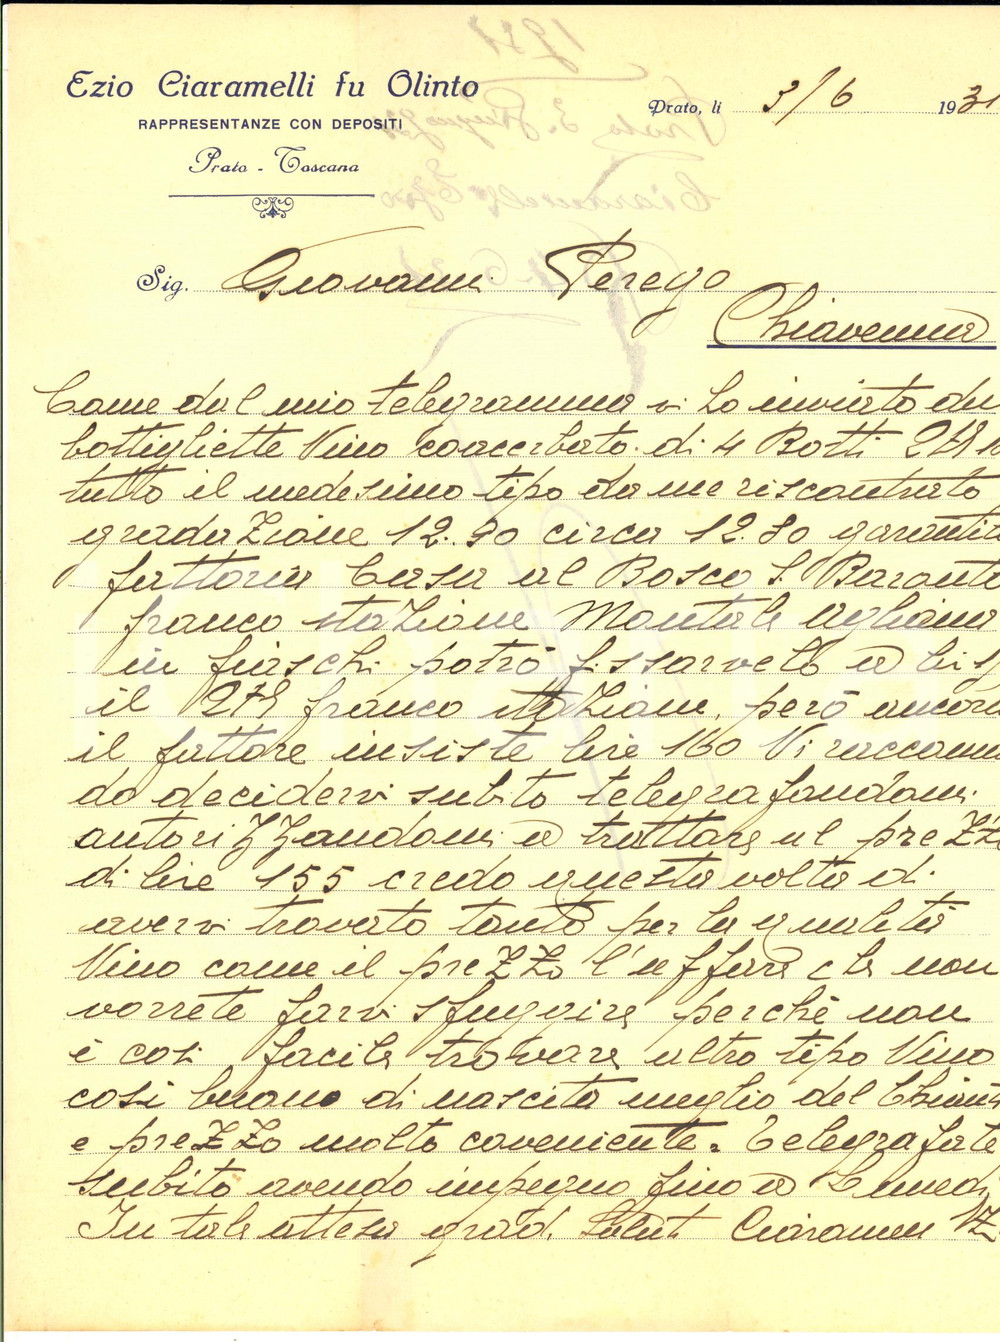 Ezio Ciaramelli fu Olinto
RAPPRESENTANZE CON DEPOSITI
Prato - Toscana
Prato, li 3/6 1931
Sig. Giovanni Perego
Chiavenna
Come dal mio telegramma vi ho inviato due
bottigliette Vino di 4 Botti
tutto il medesimo tipo da me riscontrato
gradazione 12.70 circa 12.80 garantito
fattoria Casa al Bosco S. Baronto
franco stazione Montale Agliana
in fiaschi potrò fissarvelo a lire
il franco stazione, però ancora
il fattore insiste lire 160 Vi raccoman
do decidervi subito telegrafandomi
autorizzandomi a trattare al prezzo
di lire 155 credo questa volta di
avervi trovato tanto per la qualità
Vino come il prezzo l'affare che non
vorrete farvi sfuggire perchè non
è così facile trovare altro tipo Vino
così buono di nascita meglio del Chianti
e prezzo molto coveniente. Telegrafate
subito avendo impegno fino a Lunedì
In tale attesa grad. Saluti Ciaramelli